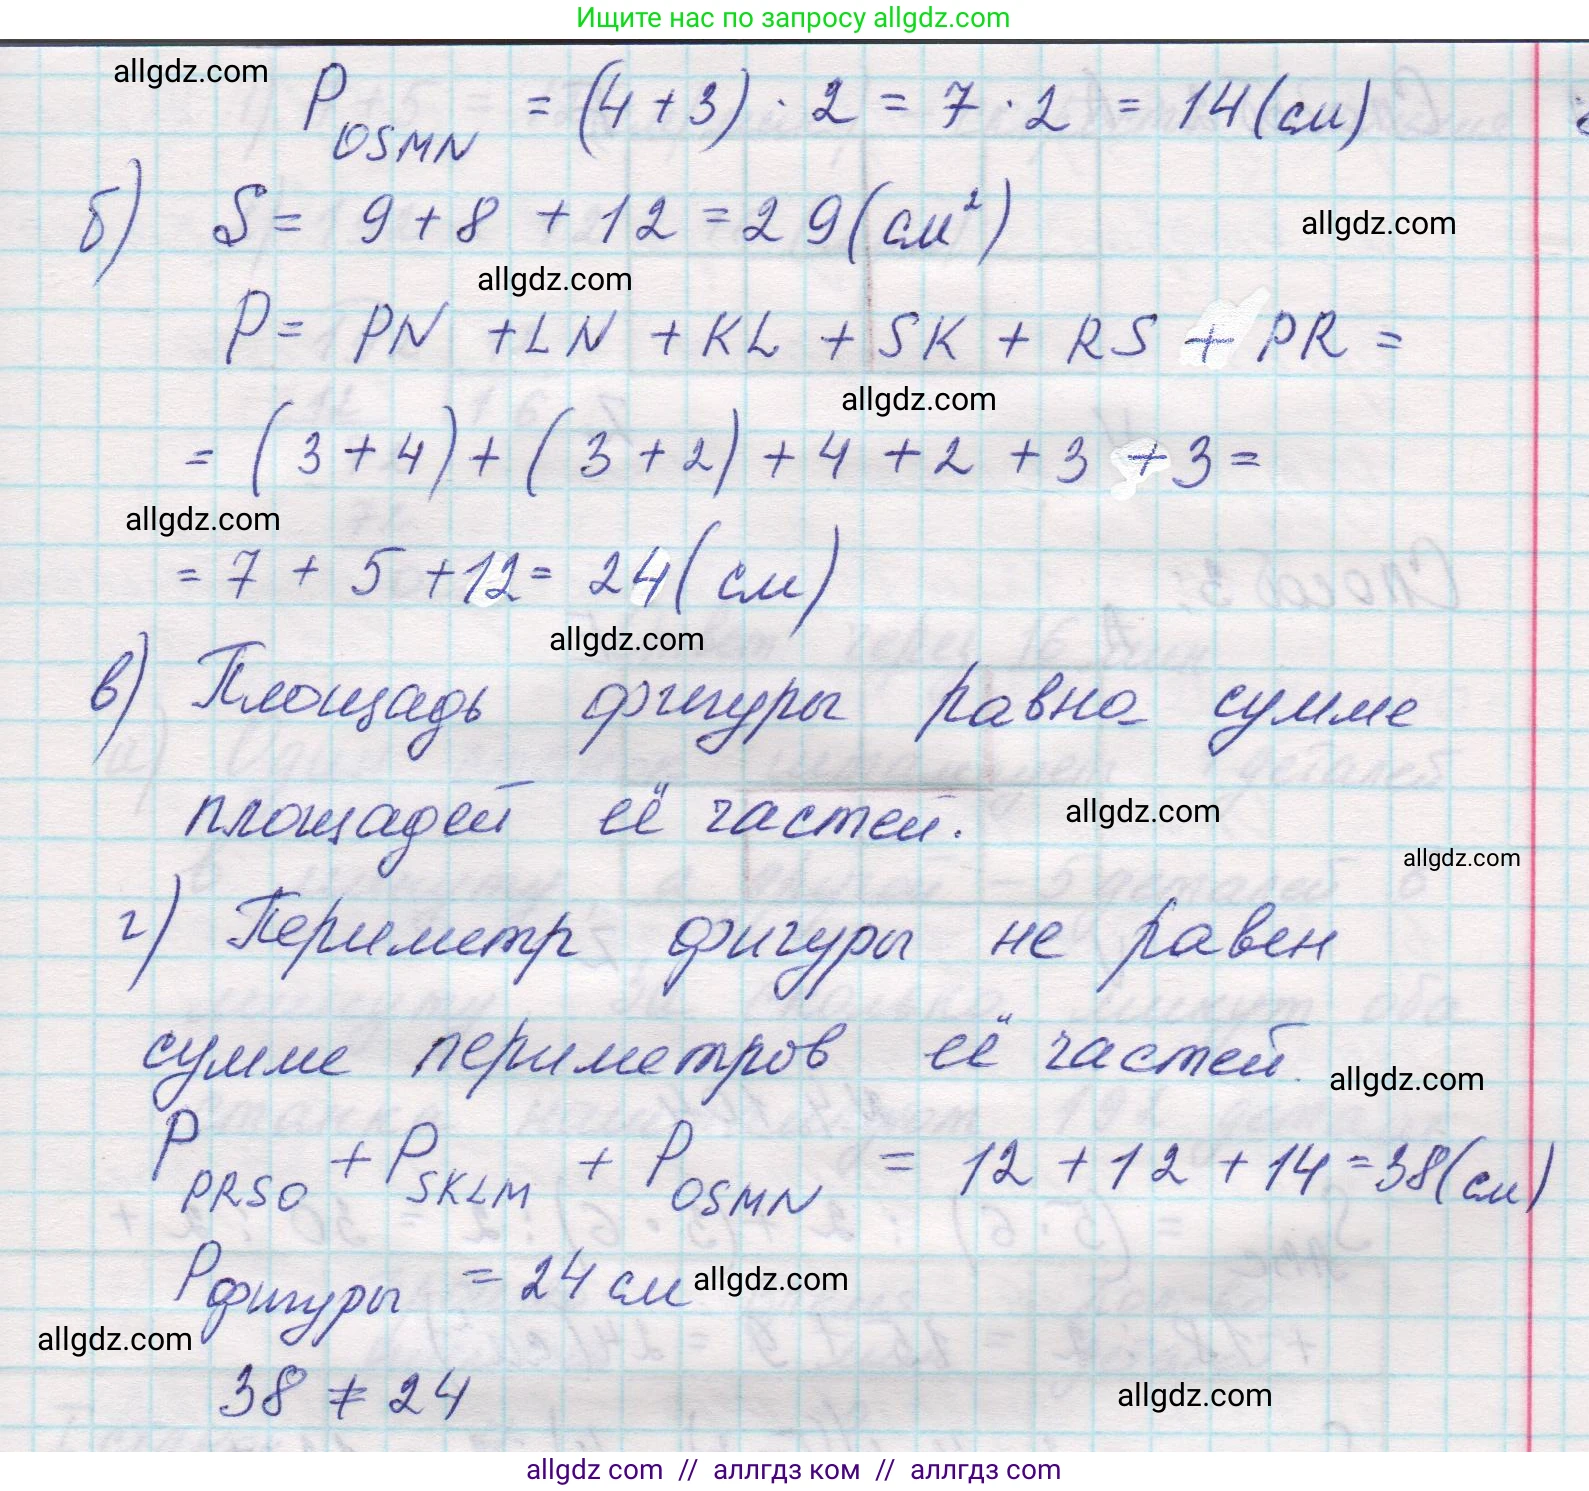 Ищите нас по запросу allgdz.com
allgdz.com
P OSMN = (4 + 3) · 2 = 7 · 2 = 14 (см)
б) S = 9 + 8 + 12 = 29 (см²)
allgdz.com
allgdz.com
P = PN + LN + KL + SK + RS + PR =
allgdz.com
= (3 + 4) + (3 + 2) + 4 + 2 + 3 + 3 =
allgdz.com
= 7 + 5 + 12 = 24 (см)
allgdz.com
в) Площадь фигуры равна сумме
площадей её частей.
allgdz.com
allgdz.com
г) Периметр фигуры не равен
сумме периметров её частей.
allgdz.com
P PRSO + P SKLM + P OSMN = 12 + 12 + 14 = 38 (см)
P фигуры = 24 см
allgdz.com
allgdz.com
38 ≠ 24
allgdz.com
allgdz com // аллгдз ком // аллгдз com